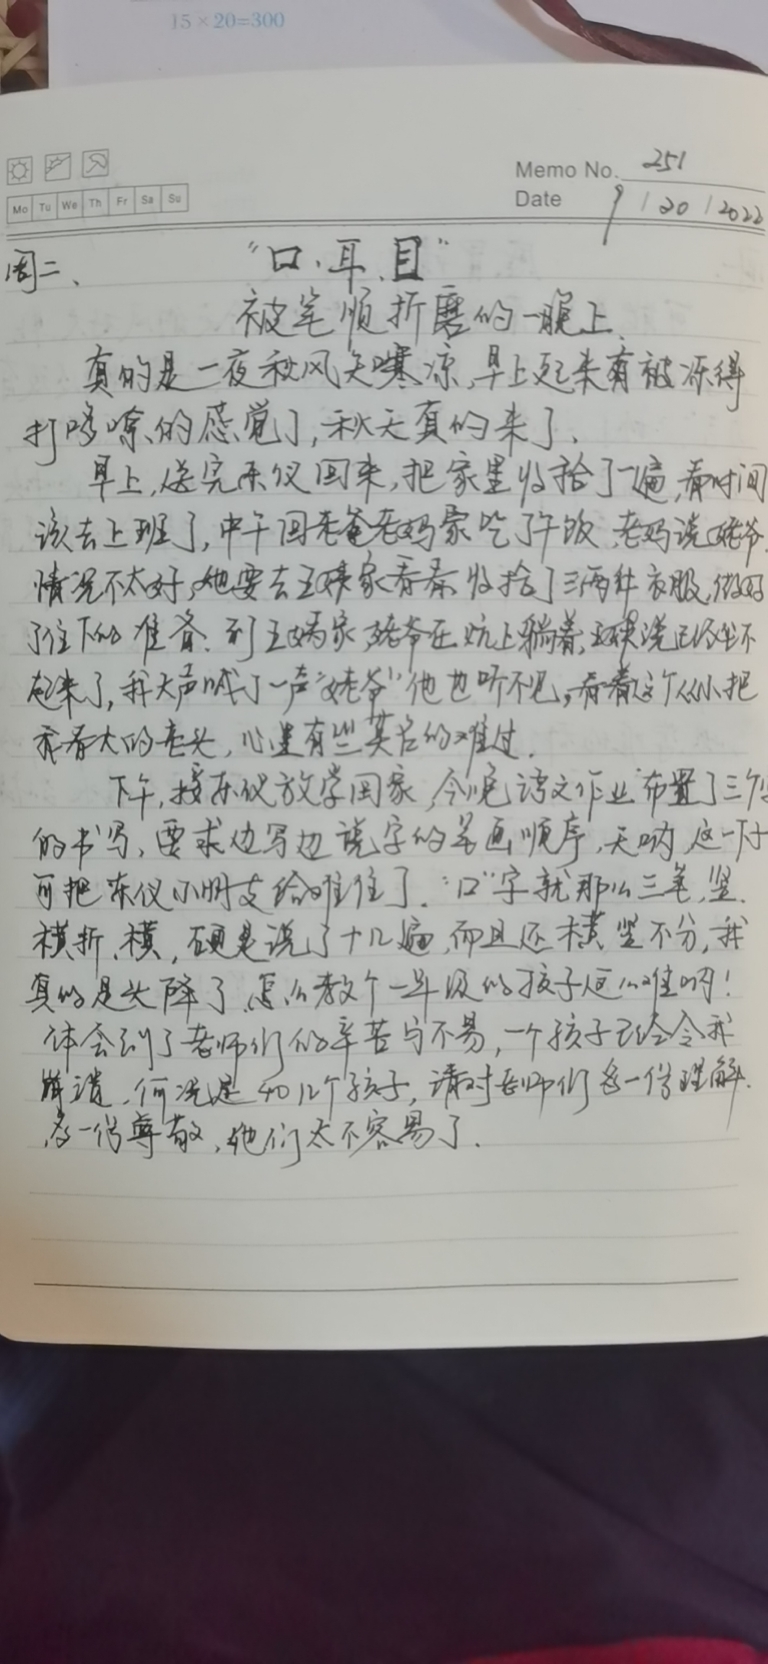 15×20=300
Memo No. 251
Mo Tu We Th Fr Sa Su
Date 9/20/2022
周二、 "口、耳、目"
被笔顺折磨的一晚上
真的是一夜秋风天寒凉,早上起来有被冻得
打哆嗦的感觉了,秋天真的来了.
早上,送完东仪回来,把家里收拾了一遍,看时间
该去上班了,中午回老爸老妈家吃了午饭,老妈说姥爷
情况不太好,她要去王姨家看看,收拾了三两件衣服,做好
了住下的准备.到王姨家,姥爷在炕上躺着,王姨说已经坐不
起来了,我大声喊了一声"姥爷"他也听不见,看着这个从小把
我看大的老头,心里有些莫名的难过.
下午,接东仪放学回家,今晚语文作业布置了三个字
的书写,要求边写边说字的笔画顺序,天呐,这一下
可把东仪小朋友给难住了."口"字就那么三笔,竖、
横折、横,硬是说了十几遍,而且还横竖不分,我
真的是头降了,怎么教个一年级的孩子这么难呐!
体会到了老师们的辛苦与不易,一个孩子已经令我
崩溃,何况是40几个孩子,请对老师们多一份理解.
多一份尊敬,她们太不容易了.